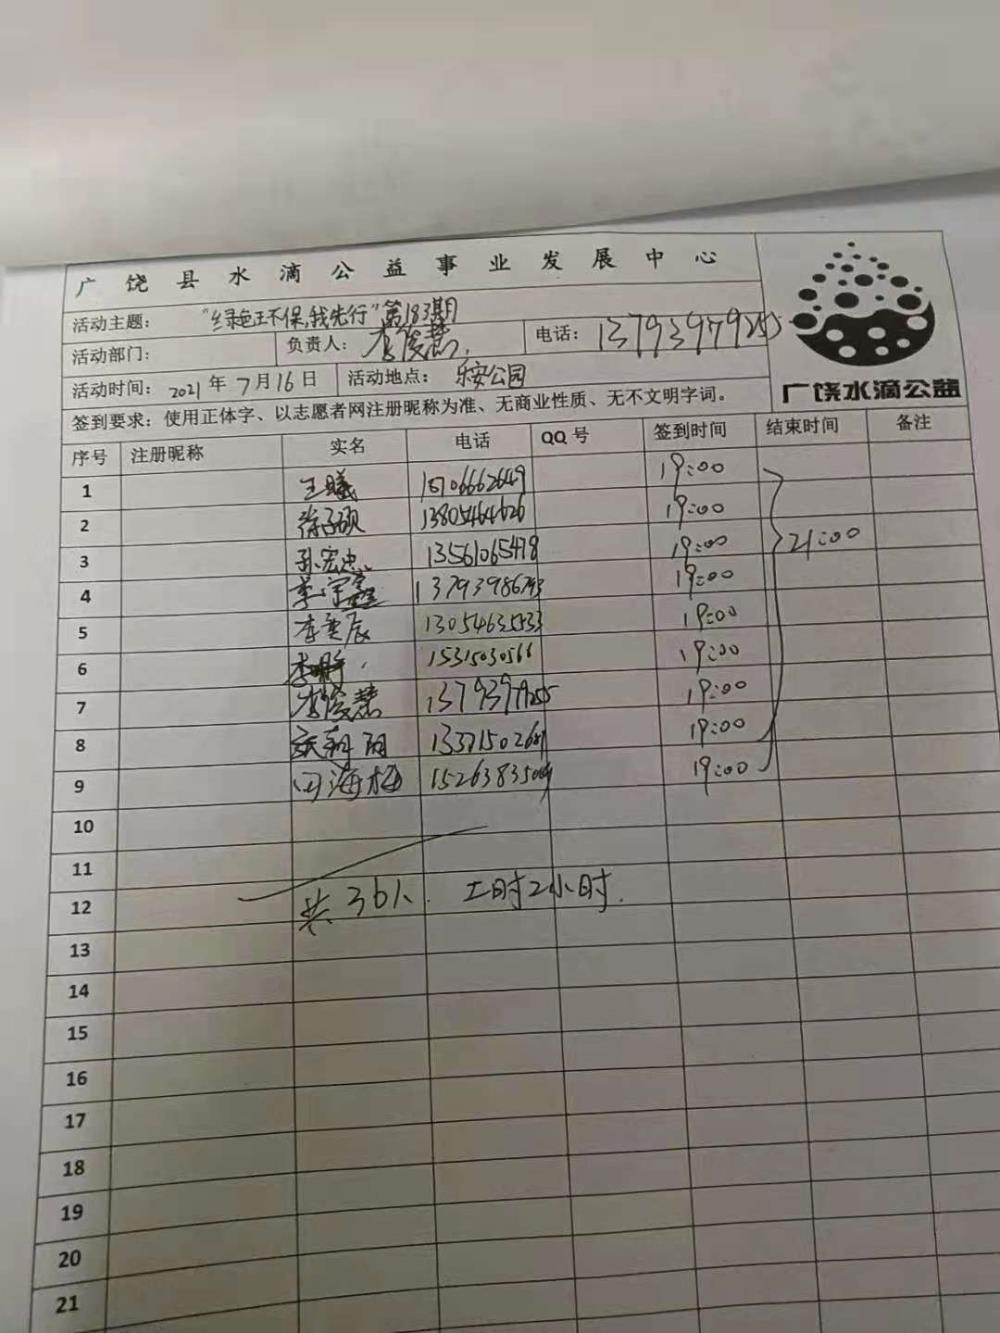 广饶县水滴公益事业发展中心
活动主题： "绿色环保,我先行"第183期
活动部门： 负责人： 李俊慧 电话： 13793979255
活动时间： 2021年7月16日 活动地点： 乐安公园
签到要求：使用正体字、以志愿者网注册昵称为准、无商业性质、无不文明字词。
广饶水滴公益
序号 注册昵称 实名 电话 QQ号 签到时间 结束时间 备注
1 王曦 19:00
2 张子硕 13805464626 19:00
3 孙宏忠 13561065478 19:00 21:00
4 李宇鑫 13793986793 19:00
5 李奕辰 13054635533 19:00
6 15315030566 19:00
7 李俊慧 13793979255 19:00
8 19:00
9 海梅 19:00
10
11
12 共36人. 工时2小时.
13
14
15
16
17
18
19
20
21